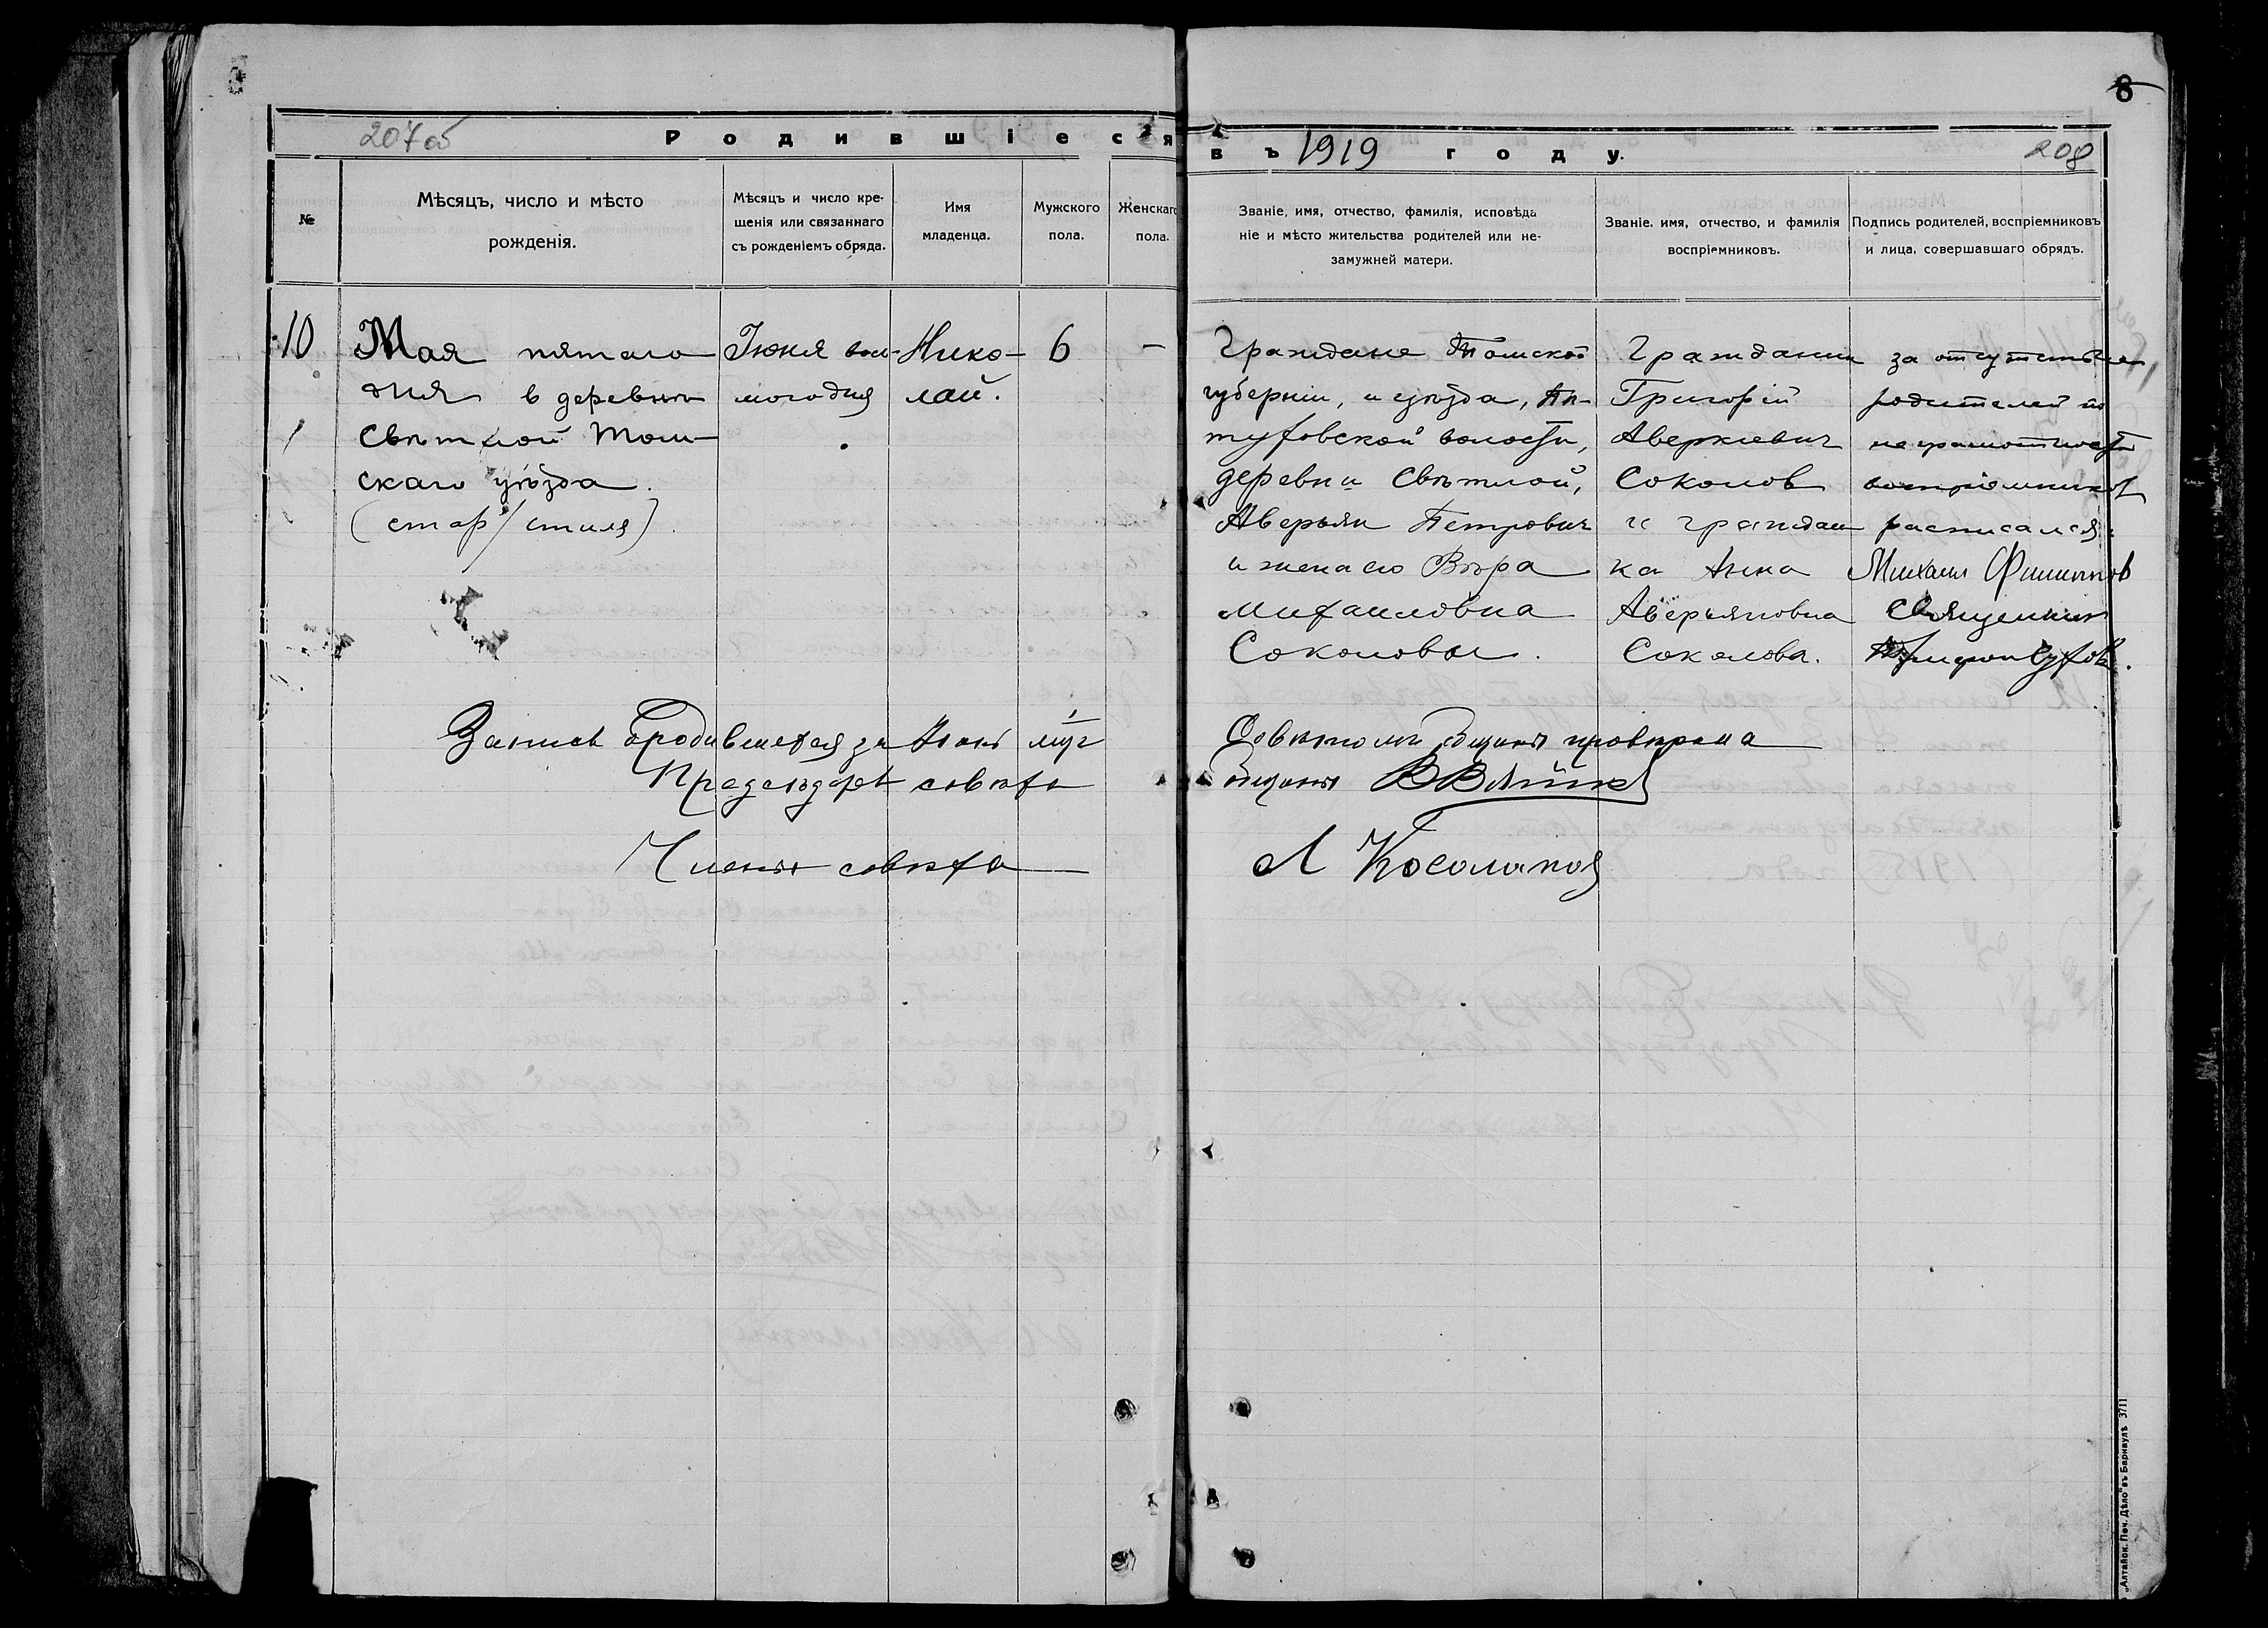 8
207об
Родившіеся
въ 1919 году.
208
№
Мѣсяцъ, число и мѣсто
рожденія.
Мѣсяцъ и число кре-
щенія или связаннаго
съ рожденіемъ обряда.
Имя
младенца.
Мужского
пола.
Женскаго
пола.
Званіе, имя, отчество, фамилія, исповѣда
ніе и мѣсто жительства родителей или не-
замужней матери.
Званіе, имя, отчество, и фамилія
воспріемниковъ.
Подпись родителей, воспріемниковъ
и лица, совершавшаго обрядъ.
10
Мая пятаго
дня в деревнѣ
Свѣтлой Том-
скаго уѣзда.
(стар/стиля)
Іюня вось-
могодня
Нико-
лай.
6
-
Граждане Томской
губерніи, и уѣзда,
волости,
деревни Свѣтлой,
Аверьян Петрович
и жена его Вѣра
Михаиловна
Соколовы.
Гражданин
Григорій
Аверкіевич
Соколов
и граждан
ка Анна
Аверьяновна
Соколова.
за отсутствіем
родителей по
неграмотности
воспріемников
расписался:
Михаил Филиппов
Священник
Запись о родившехся за Іюнь м-ц
Совѣтом общины провѣрена
Предсѣдарь совѣта
общины
Члены совѣта
Л Косолапов
„Алтайск. Печ. Дѣло" въ Барнаулѣ 3711